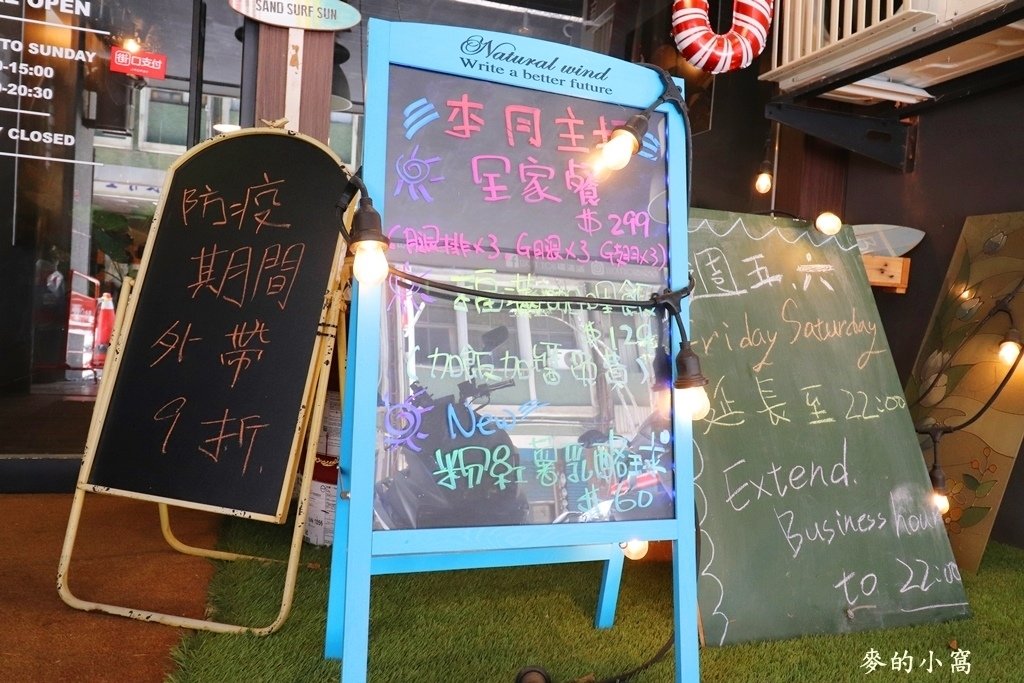 SAND SURF SUN
OPEN
TO SUNDAY
-15:00
-20:30
CLOSED
街口支付
防疫
期間
外帶
9折
Natural wind
Write a better future
本月主打
全家餐
$299
(腿排x3 G腿x3 G翅x3)
$12
(加飯加醬免費)
New
粉紅薯乳酪球
$60
週五.六
riday Saturday
延長至22:00
Extend.
Business hour
to 22:00
麥的小窩